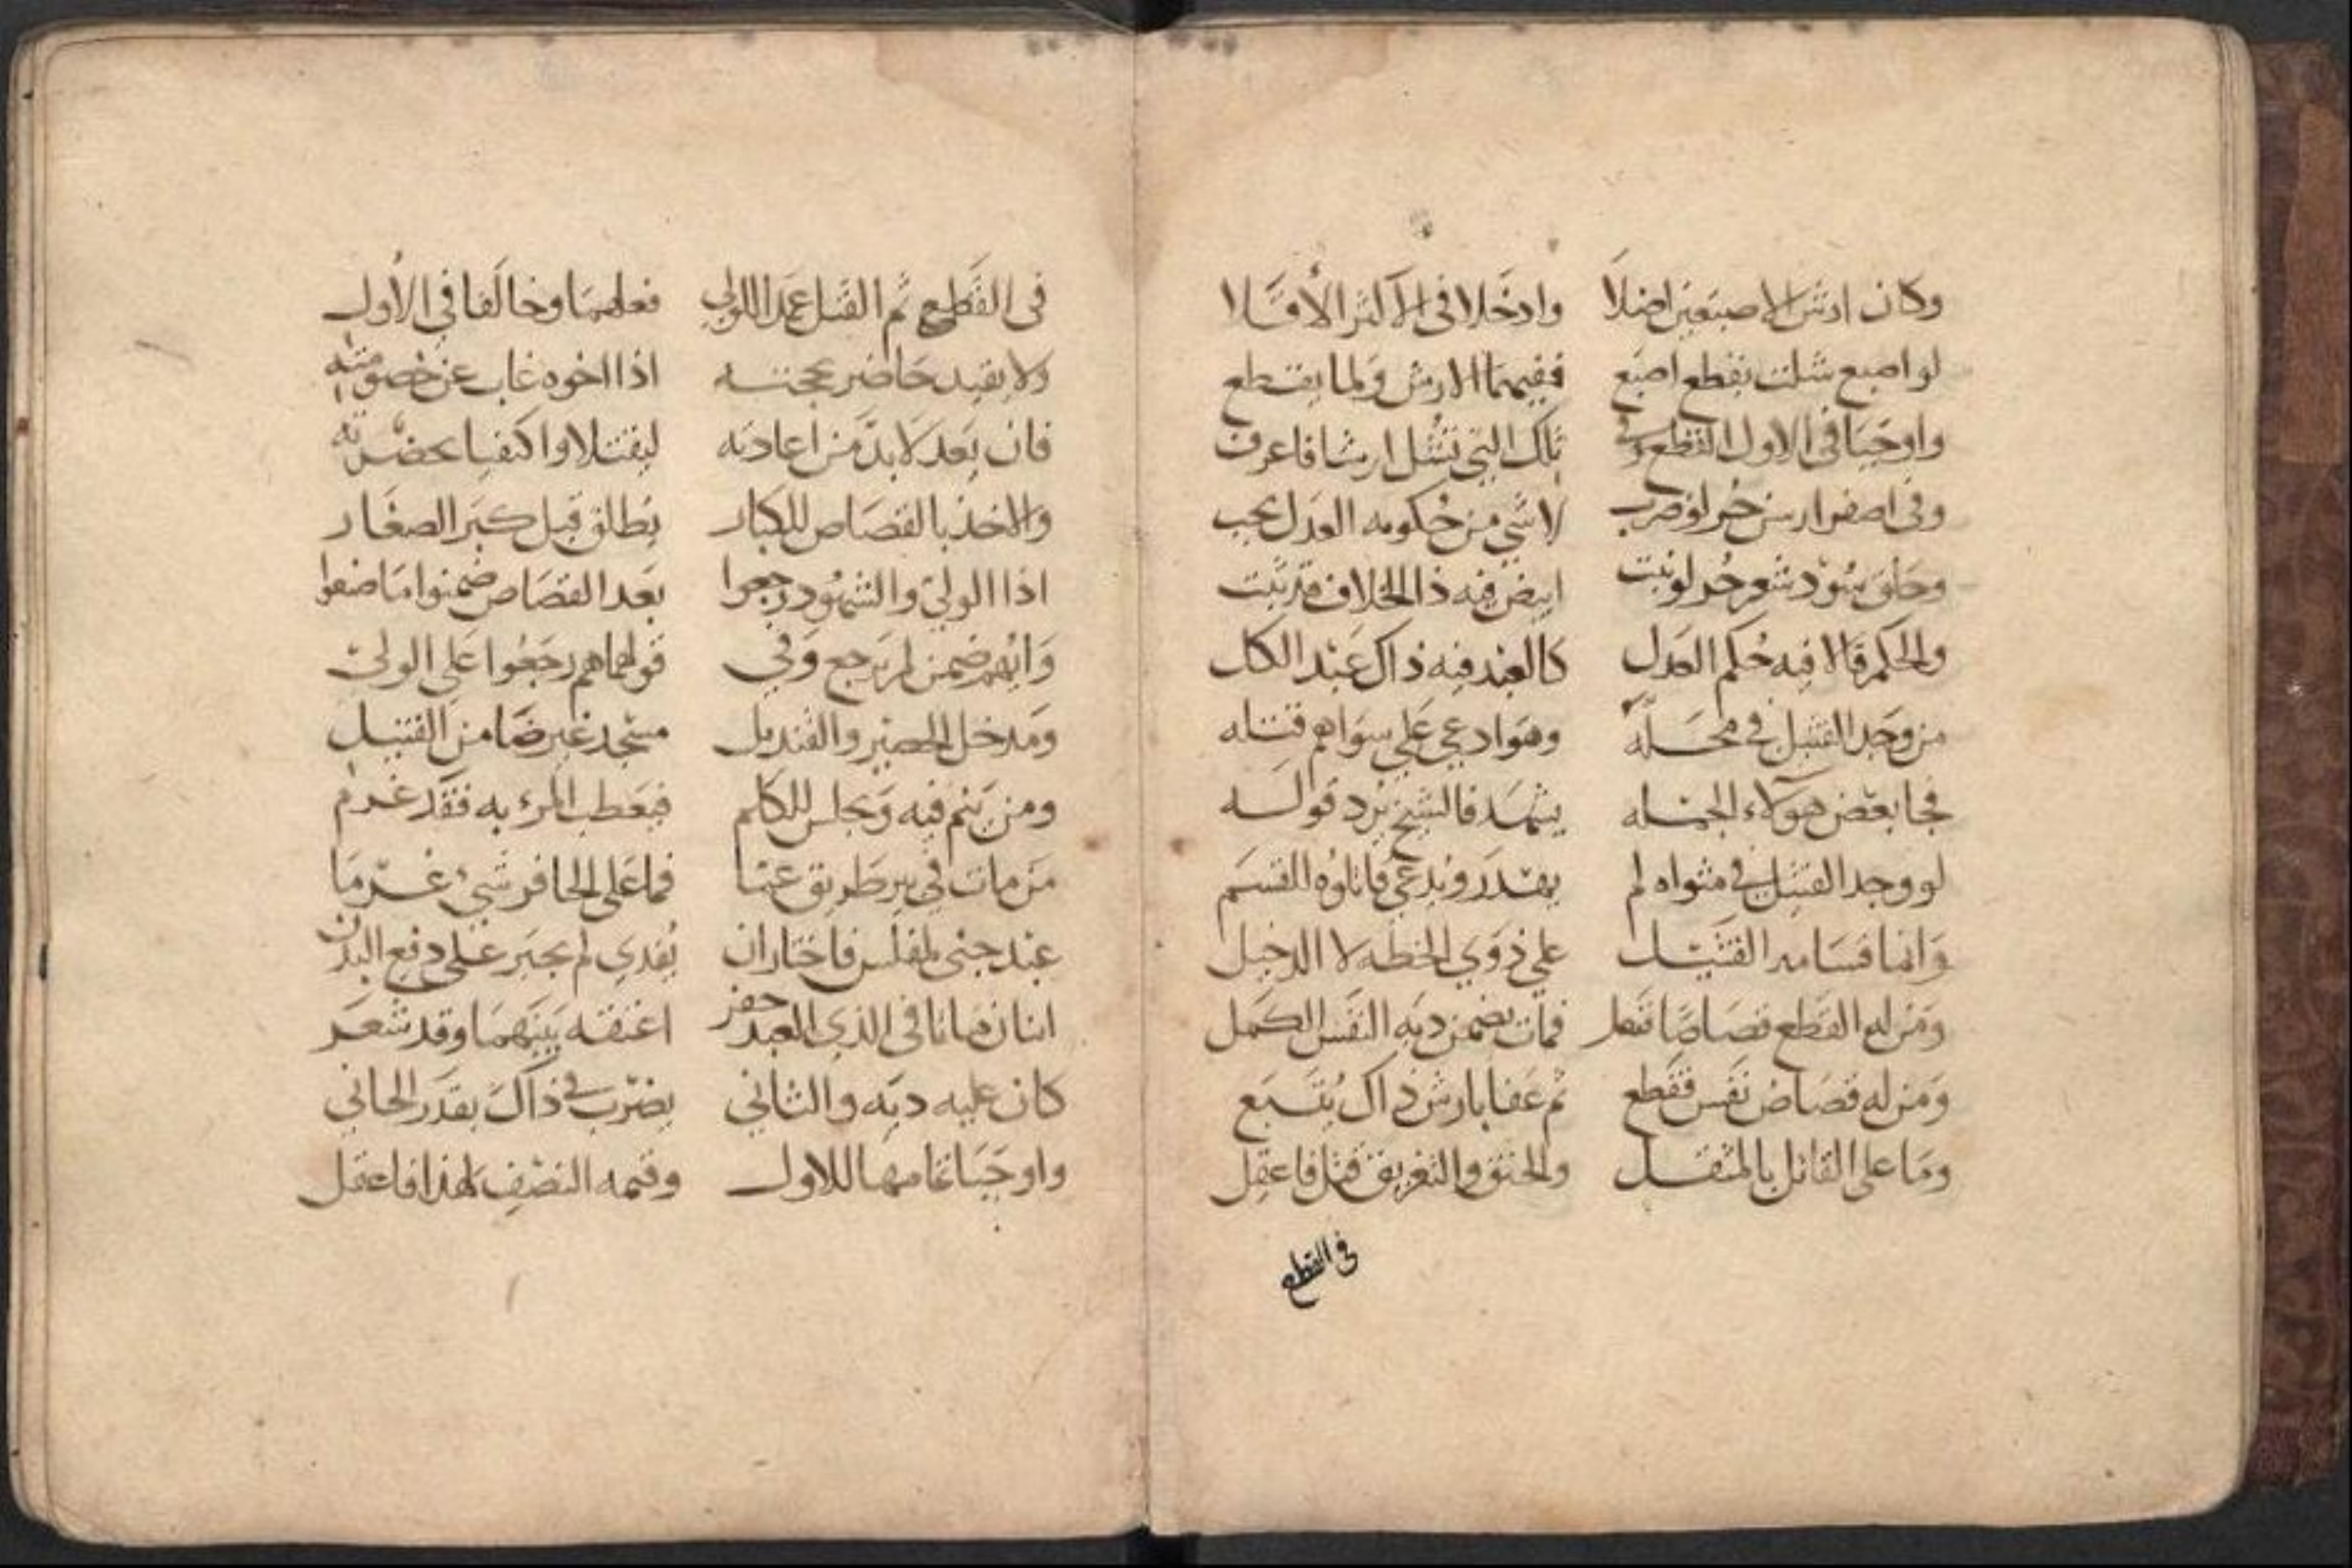 وكان ارش الاصبعين اصلا وادخلا في الاكثر الاقلا
لو اصبع شلت بقطع اصبع ففيهما الارش ولما يقتطع
واوجبا في الاول القطع وفي تلك التي تشل ارشا فاعرف
وفي اصفرار سن حر لو ضرب لا شي من حكومه العدل يجب
وحلق سود شعر حر لو نبت ابيض فيه ذا الخلاف قد ثبت
والحكم قالا فيه حكم العدل كالعبد فيه ذاك عند الكل
من وجد القتيل في محله وهو ادعي علي سواهم قتله
فجا بعض هولاء الجمله يشهد فالشيخ يرد قوله
لو وجد القتيل في مثواه لم يهدر ويدعي فاتلوه القسم
وانما قسامه القتيل علي ذوي الخطه لا الدخيل
ومن له القطع قصاصا فعل فمات يضمن ديه النفس الكمل
ومن له قصاص نفس فقطع ثم عفا بارش ذاك يتبع
وما على القاتل بالمثقل والخنق والتغريق قتل فاعقل
في القطع
في القطع ثم القتل عمدا للولي فعلهما وخالفا في الاول
ولا يقيد حاضر بحجته اذا اخوه غاب عن خصومته
فان يعد لا بد من اعادته ليقتلا واكتفيا بحضرته
والاخذ بالقصاص للكبار يطلق قبل كبر الصغار
اذا الولي والشهود رجعوا بعد القصاص ضمنوا ما ضيعوا
وايهم ضمن لم يرجع وفي قولهما هم رجعوا على الولي
ومدخل الحصير والقنديل مسجد غير ضامن القتيل
ومن ينم فيه ويجلس للكلم فيعطب المرء به فقد غرم
من مات في بير طريق غما فما على الحافر شيء غرما
عبد جنى لمفلس فاختار ان يفدي لم يجبر على دفع البدن
اثنان ماتا في الذي العبد حفر اعتقه بينهما وقد شعر
كان عليه ديه والثاني يضرب في ذاك بقدر الجاني
واوجبا تمامها للاول وقيمه النصف لهذا فاعقل